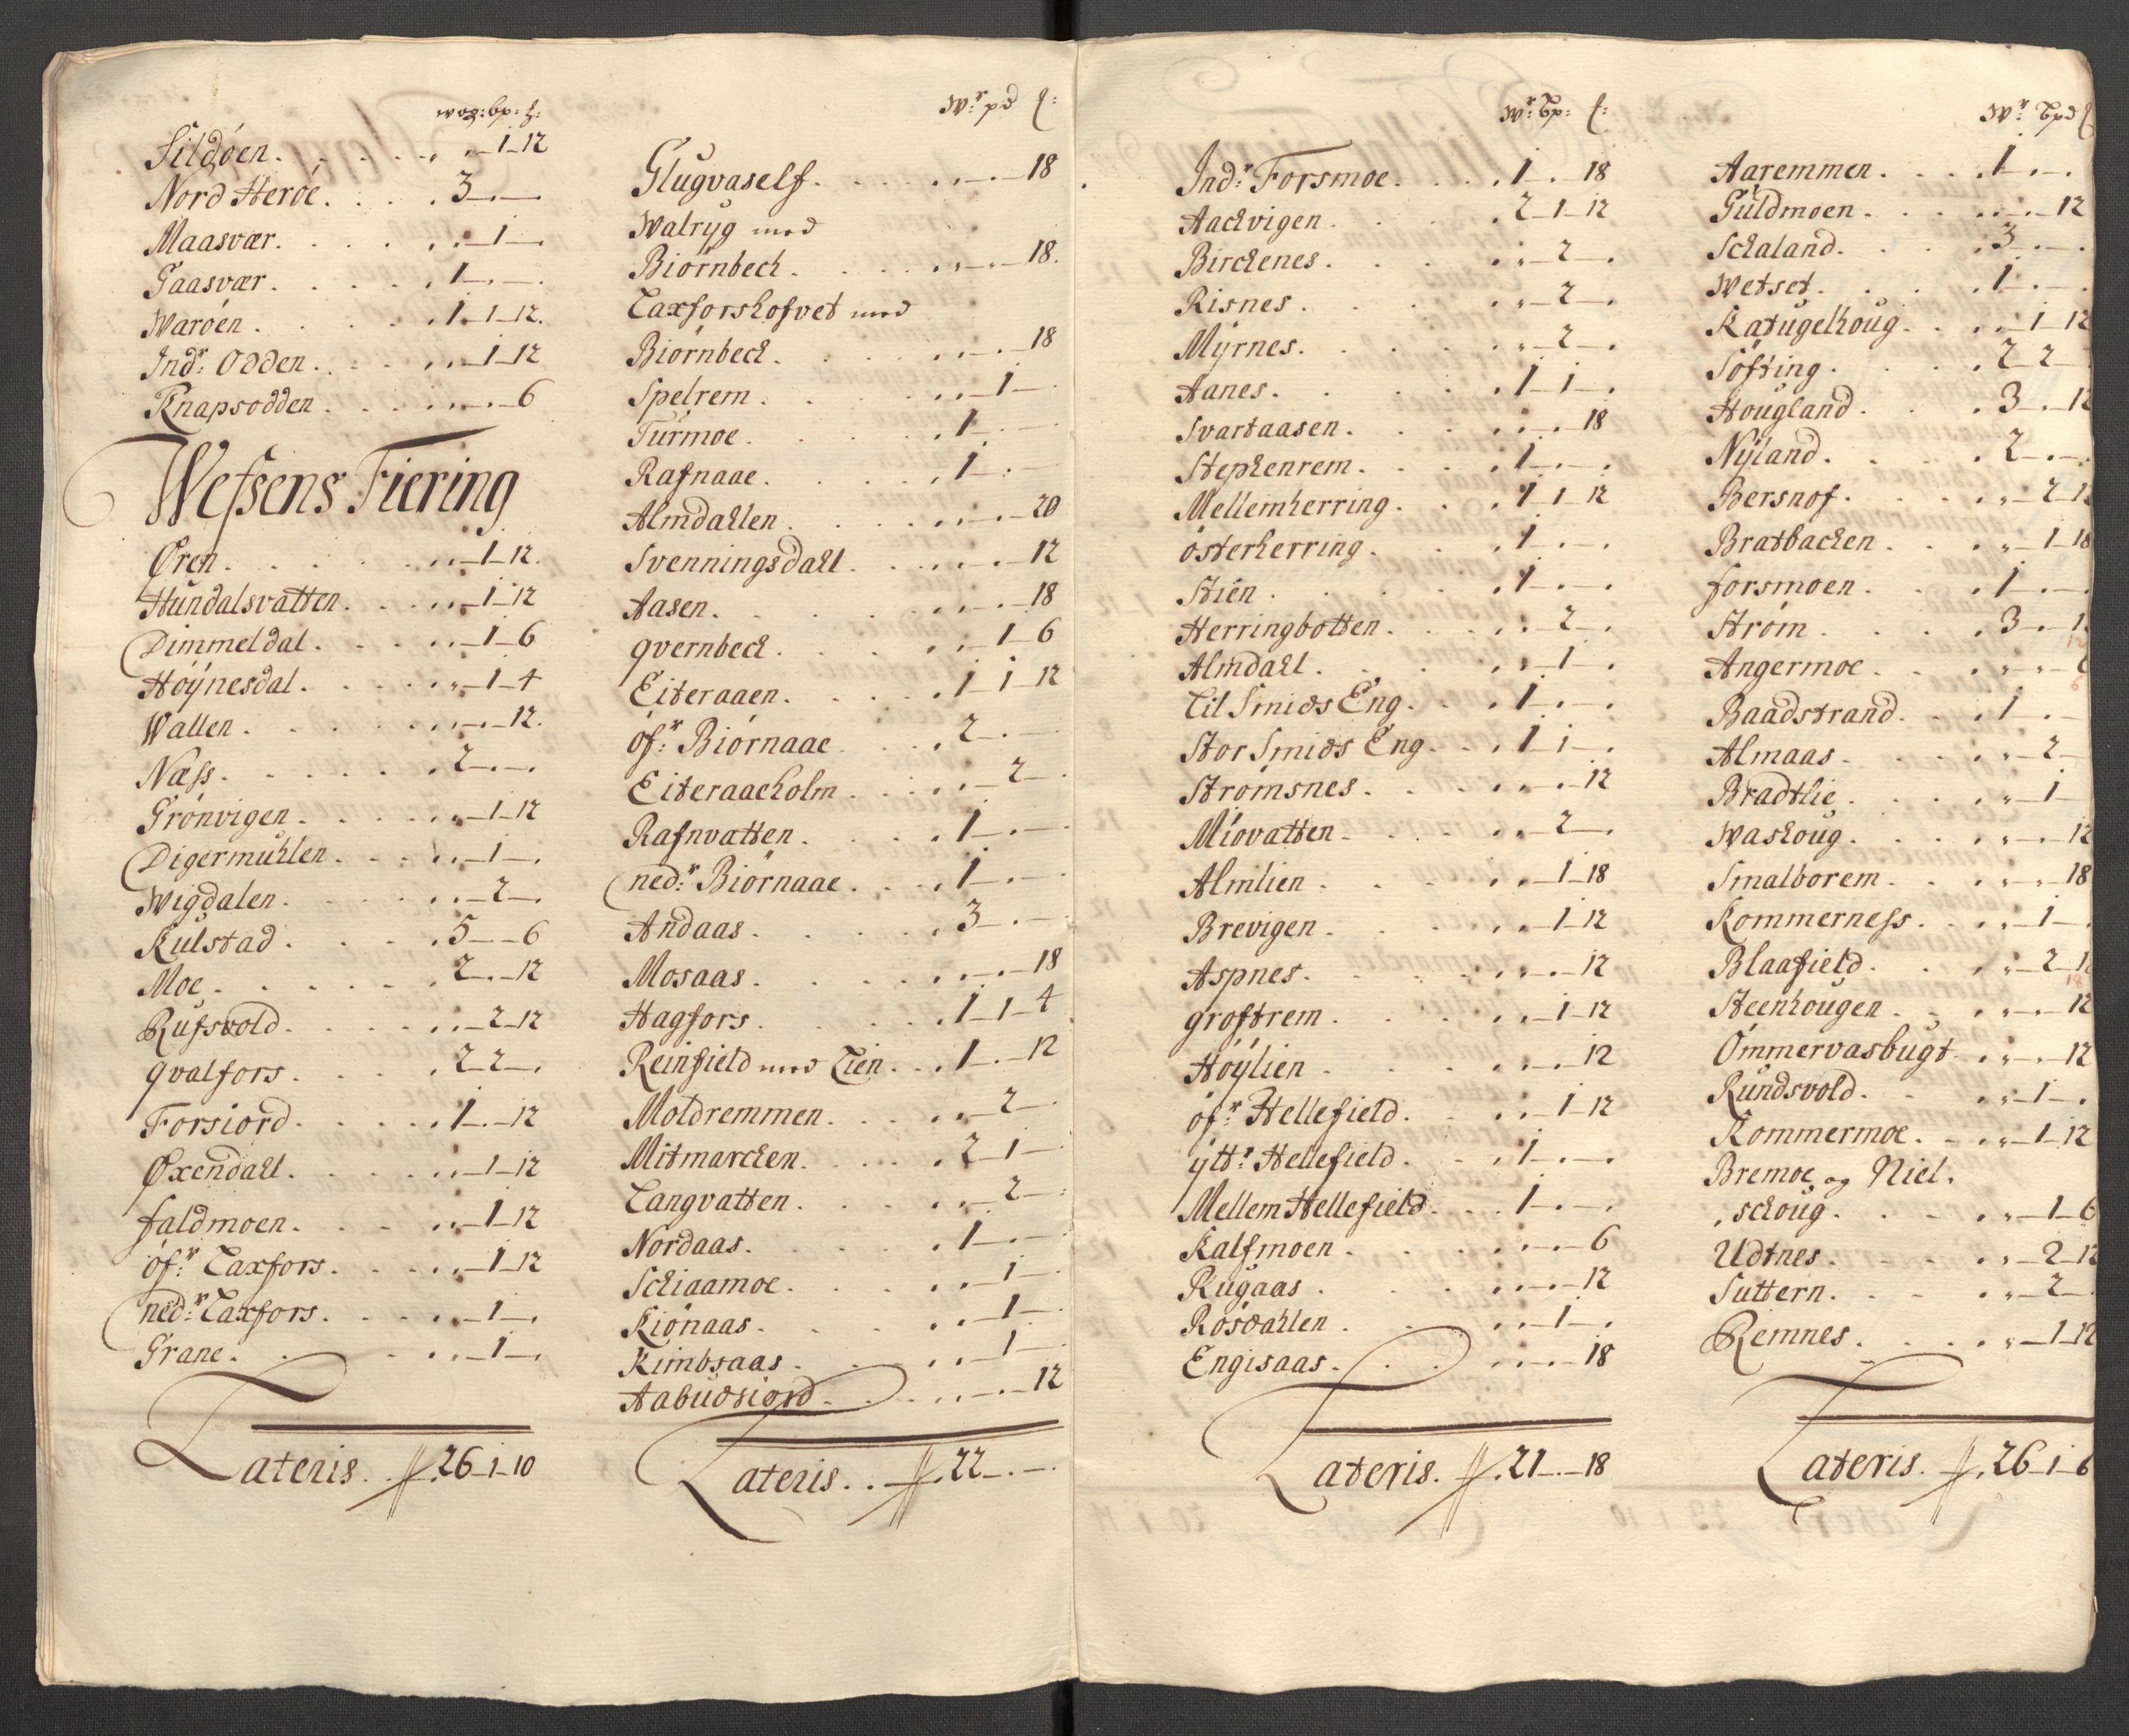 wog: bp: ℔:
Sildøen . . . . . „ _ 1 _ 12
Nord Herøe . . . . 3 _ . _
Maasvær . . . . „ _ 1 _ .
Gaasvær . . . . . 1 _ . _
Warøen . . . . . 1 . 1 _ 12.
Ind:r Odden . . . . „ _ 1 _ 12
Knapsodden . . . . . . _ 6
Wefsens Fiering
Øren . . . . . „ _ 1 _ 12.
Hundalsvatten . . . „ _ 1 _ 12
Dimmeldal . . . . „ _ 1 _ 6
Høynesdal . . . . „ _ 1 _ 4
Wallen . . . . . . _ 12.
Næss . . . . . 2 _ . _ .
Grønvigen . . . . „ _ 1 _ 12
Digermuhlen . . . „ _ 1 _ .
Wigdalen . . . . „ _ 2 _ .
Kulstad . . . . 5 _ _ 6
Moe . . . . . 2 _ . _ 12
Rufsvold . . . . „ _ 2 _ 12
qvalfors . . . . 2 _ 2 _ .
Forsiord . . . . 1 _ . _ 12
Øxendahl . . . . „ _ 1 _ 12
faldmoen . . . . „ _ 1 _ 12
öf:r Laxfors . . . „ _ 1 _ 12
ned:r Laxfors . . . „ _ 1 _ .
Grane . . . . „ _ 1 _ .
Lateris . . 26 _ 1 _ 10
W:r pd ℔:
Glugvaself . . . . . . _ 18
Walryg med
Biørnbech . . . . . . _ 18.
Laxforshofvet med
Biørnbech . . . . . . _ 18
Spelrem . . . . „ _ 1 _ .
Turmoe . . . . 1 _ . _
Rafnaae . . . . 1 _ . _
Almdahlen . . . . . . _ 20
Svenningsdahl . . . . . . _ 12
Aasen . . . . . . _ 18
qvernbech . . . . „ 1 _ 6
Eiteraaen . . . . 1 _ 1 _ 12
öf:r Biørnaae . . . 2 _ . _
Eiteraaeholm . . . „ _ 2 _ .
Rafnvatten . . . . 1 _ . _
ned:r Biørnaae . . . 1 _ . _
Andaas . . . . 3 _ . _
Mosaas . . . . . . _ 18
Hagfors . . . . 1 _ 1 _ 4
Reinfield med Lien . . . 1 _ . _ 12
Moldremmen . . . . „ _ 2 _
Mitmarchen . . . . 2 _ 1 _
Langvatten . . . . „ _ 2 _ :
Nordaas . . . . 1 _ . _
Schiaamoe . . . . „ _ 1 _
Kiønaas . . . . „ _ 1 _
Kimbsaas . . . . „ _ 1 _
Aabudsiord . . . . . . _ 12
Lateris . . 22 _ . _
W:r bp: ℔:
Ind:r Forsmoe . . . . 1 _ . 18
Aachvigen . . . . 2 _ 1 _ 12
Birchenes . . . . „ _ 2 _ .
Risnes . . . . „ _ 2 _ .
Myrnes . . . . „ _ 2 _ .
Aanes . . . . 1 _ 1 _ .
Svartaasen . . . . . . 18
Stephenrem . . . . 1 _ . _ .
Mellemherring . . . 1 _ 1 _ 12
österherring . . . 1 _ . _ .
Stien . . . . 1 _ . _ .
Herringbotten . . . „ _ 2 _ .
Almdahl . . . . „ _ 1 _ .
Lil Smids Eng . . . 1 _ . _ .
Stor Smids Eng . . . 1 _ 1 _ .
Strømsnes . . . . . . _ 12
Miovatten . . . . „ _ 2 _ .
Almlien . . . . „ _ 1 _ 18
Brevigen . . . . „ _ 1 _ 12
Aspnes . . . . . . _ 12
groftrem . . . . „ _ 1 _ 12
Høylien . . . . . . _ 12
öf:r Hellefield . . . „ _ 1 _ 12
ytt:r Hellefield . . . 1 _ . _ .
Mellem Hellefield . . . 1 _ . _ .
Kalfmoen . . . . . . _ 6
Rugaas . . . . . . _ 12
Røsdahlen . . . . „ _ 1 _ .
Engisaas . . . . . . _ 18
Lateris . . 21 _ . _ 18
W:r bpd ℔
Aaremmen . . . . 1 _ . _ .
Guldmoen . . . . . . _ 12
Schaland . . . . 3 _ . _ .
Wetset . . . . 1 _ . _ .
Katugelhoug . . . „ _ 1 _ 12
Søfting . . . . 2 _ 2 _
Hougland . . . . 3 _ . _ 12
Nyland . . . . 2 _ . _
Bersnof . . . . „ _ 2 _ 12
Bratbachen . . . . „ _ 1 _ 18
forsmoen . . . . 1 _ . _
Strøm . . . . 3 _ . _ 1
Angermoe . . . . „ _ . _ 6
Baadstrand . . . . 1 _ . _
Almaas . . . . „ _ 2 _
Bradtlie . . . . „ _ 1 _
Washoug . . . . . . _ 12
Smalborem . . . . . . _ 18
Kommerness . . . . „ _ 1 _ .
Blaafield . . . . „ _ 2 _ 1
Steenhougen . . . . . . _ 12
Ommervasbugt . . . . . _ 12
Rundsvold . . . . „ _ 1 _ .
Kommermoe . . . . „ _ 1 _ 12
Bremoe og Niel.
. schoug . . . . „ _ 1 _ 6
Udtnes . . . . „ _ 2 _ 12
Suttern . . . . „ _ 2 _
Remnes . . . . „ _ 1 _ 12
Lateris . . 26 _ 1 _ 6